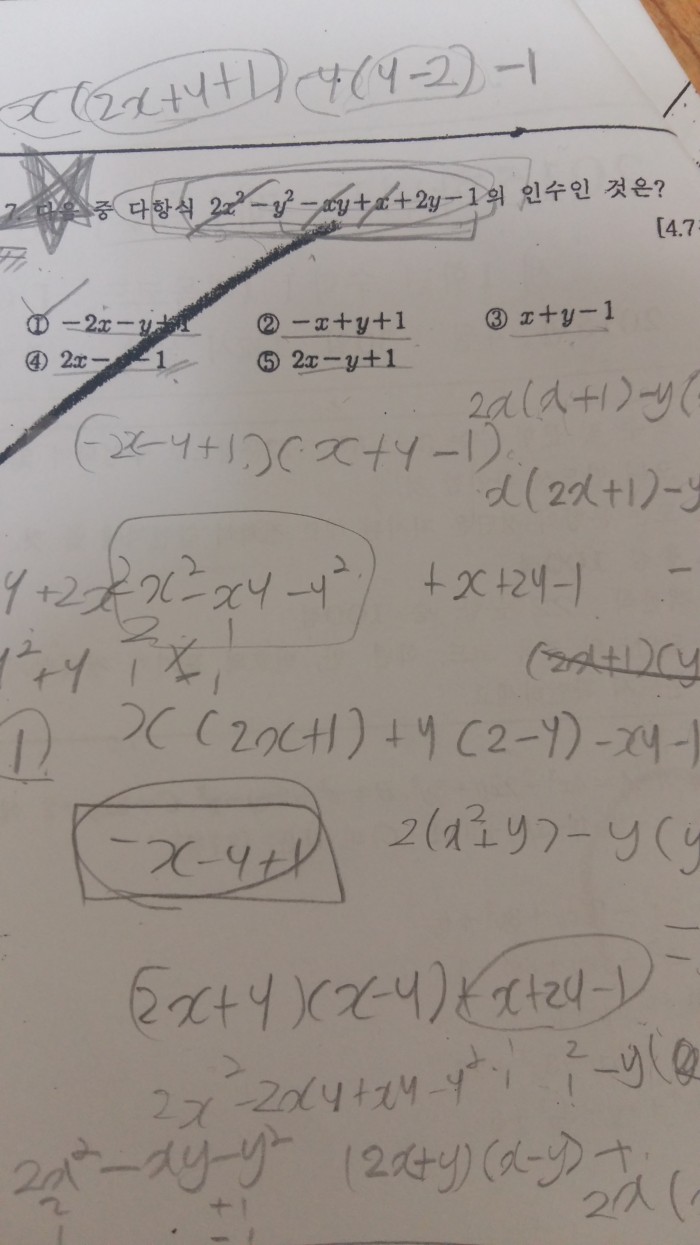 x(2x+y+1)-y(y-2)-1
7. 다음 중 다항식 2x²-y²-xy+x+2y-1의 인수인 것은?
[4.7
① -2x-y+1 ② -x+y+1 ③ x+y-1
④ 2x-y-1 ⑤ 2x-y+1
2x(x+1)-y(
(-2x-y+1)(x+y-1)
x(2x+1)-y
x²-xy-y² +x+2y-1 -
2 1
y²+y 1 -1
(2x+1)(y
1) x(2x+1)+y(2-y)-xy-1
-x-y+1 2(x²+y)-y(y
(2x+y)(x-y)+x+2y-1
2x²-2xy+xy-y² -y(
2x²-xy-y² (2x+y)(x-y)+
2 +1 2x(
1 -1